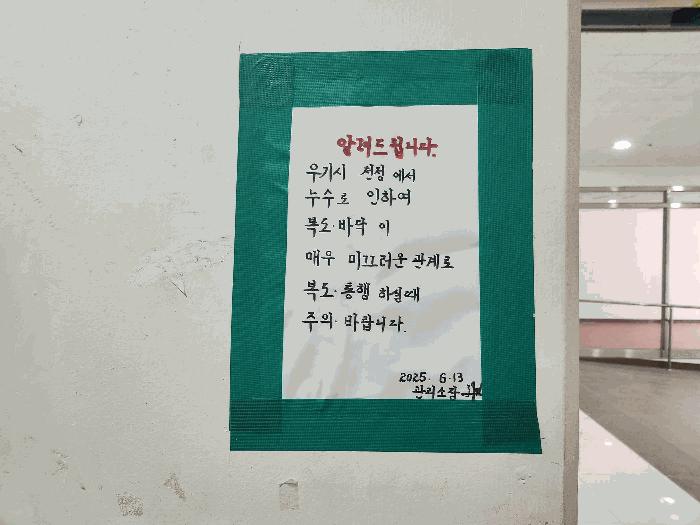 알려드립니다.
우기시 천정에서
누수로 인하여
복도·바닥이
매우 미끄러운 관계로
복도·통행 하실때
주의·바랍니다.
2025. 6.13
관리소장